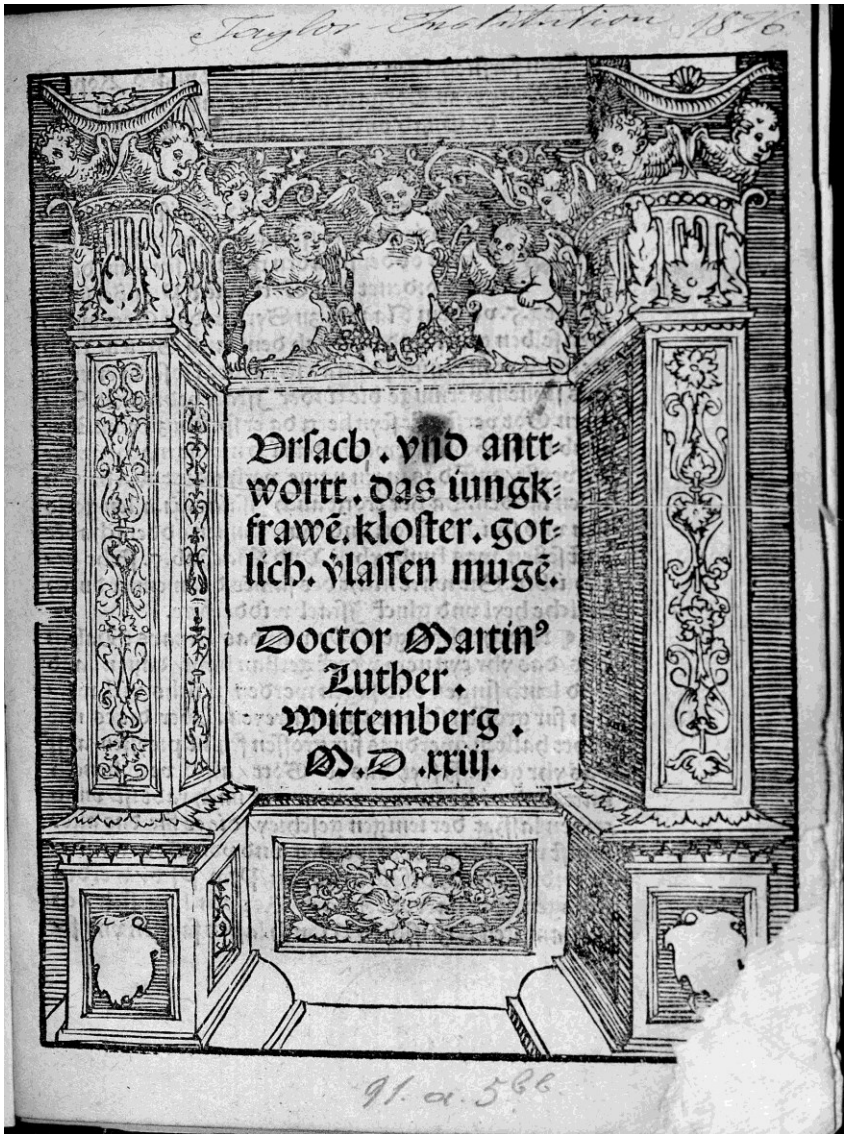 Taylor Institution 1876
Vrsach . vnd antt⸗
wortt . das iungk⸗
frawẽ . kloster . got⸗
lich . v̈lassen mugẽ.
Doctor Martinꝰ
Luther .
Wittemberg .
M . D . xxiij.
91. a. 5